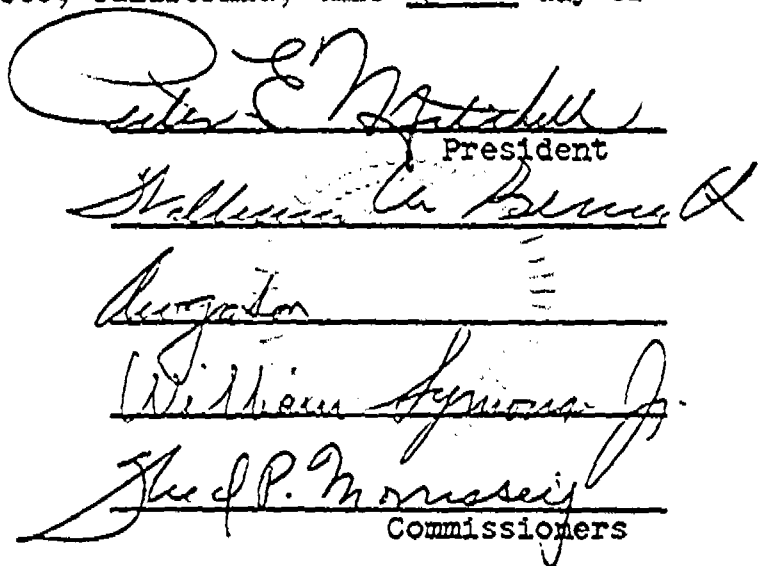 day of
Peter E. Mitchell
President
William A. Bennett
William Symons Jr.
Fred P. Morrissey
Commissioners